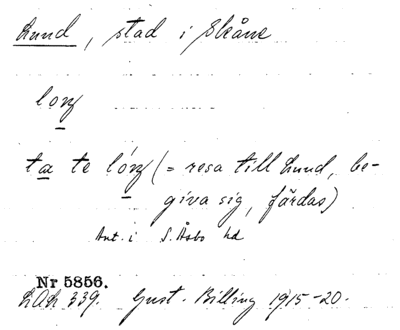 Lund, stad i Skåne
lonŋ
ta te lónŋ (= resa till Lund, be-
giva sig, färdas)
Ant. i S. Åsbo hd
Nr 5856.
LAL 339. Gust. Billing 1915-20.